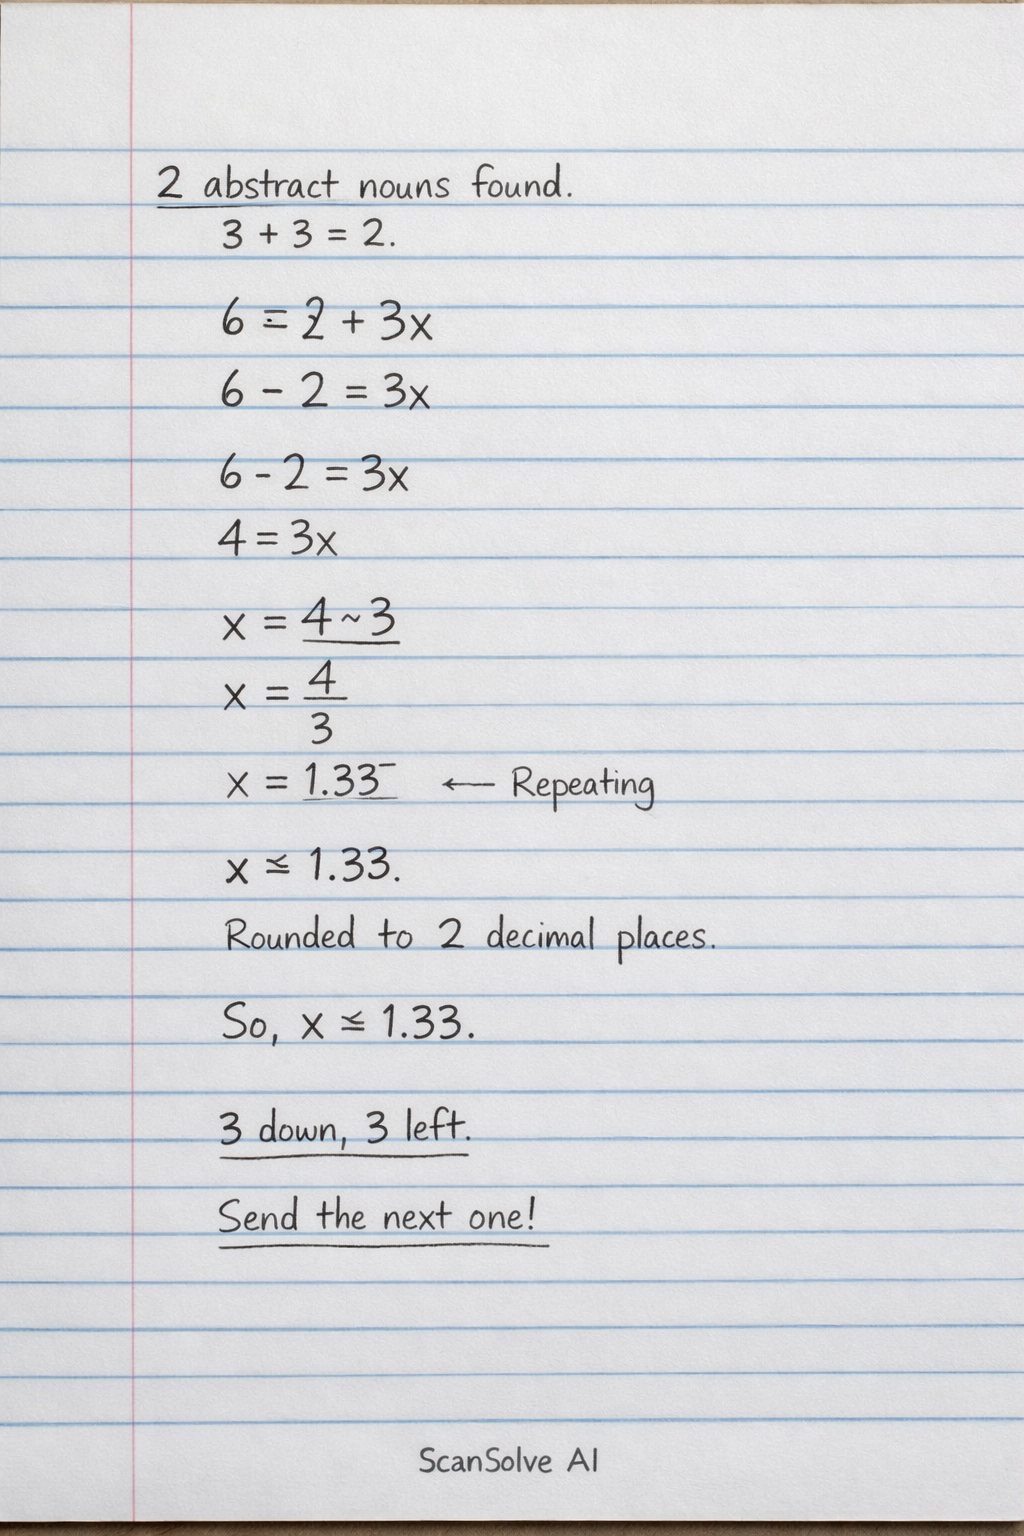 2 abstract nouns found.
3 + 3 = 2.
6 = 2 + 3x
6 - 2 = 3x
6 - 2 = 3x
4 = 3x
x = 4 ~ 3
x = 4
3
x = 1.33‾ ← Repeating
x ≤ 1.33.
Rounded to 2 decimal places.
So, x ≤ 1.33.
3 down, 3 left.
Send the next one!
ScanSolve AI